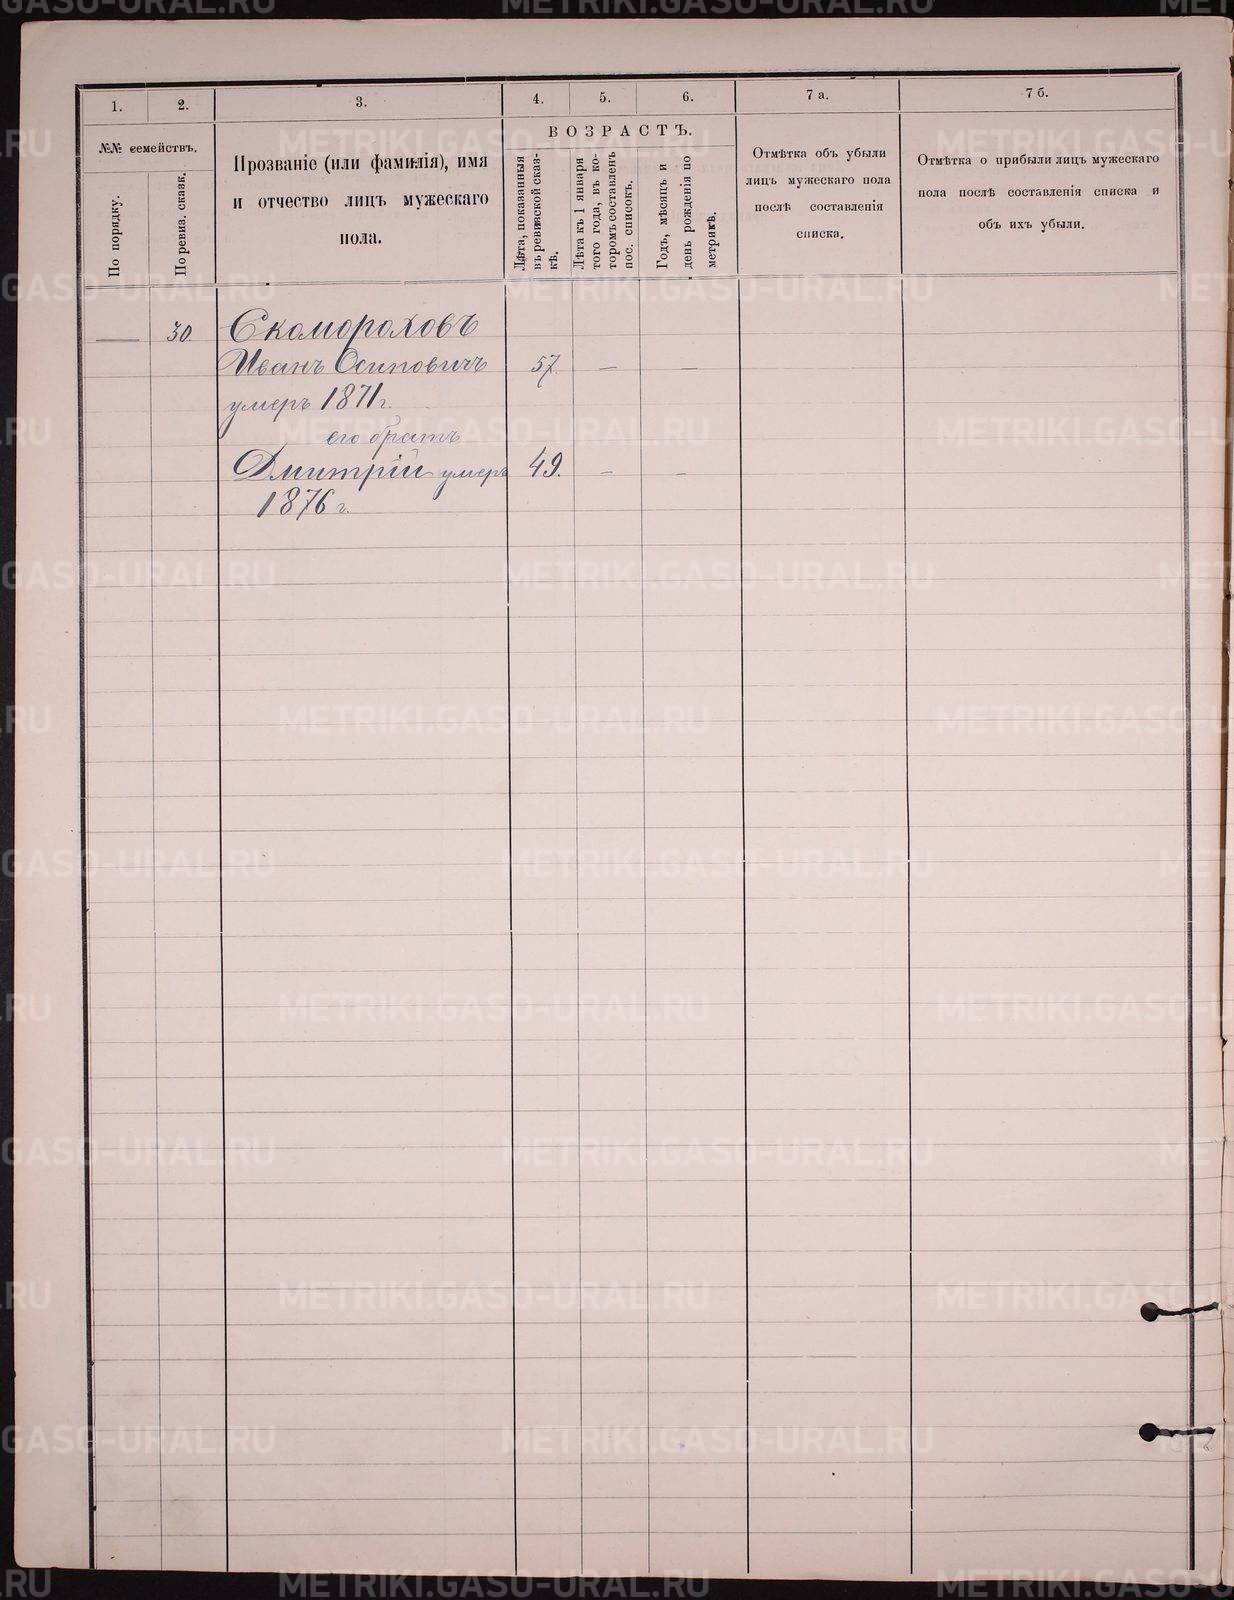 1. 2. 3. 4. 5. 6. 7 а. 7 б.
№№ семействъ.
По порядку.
По ревиз. сказк.
Прозваніе (или фамилія), имя
и отчество лицъ мужескаго
пола.
ВОЗРАСТЪ.
Лѣта, показанныя
въ ревизской сказ-
кѣ.
Лѣта къ 1 января
того года, въ ко-
торомъ составленъ
пос. списокъ.
Годъ, мѣсяцъ и
день рожденія по
метрикѣ.
Отмѣтка объ убыли
лицъ мужескаго пола
послѣ составленія
списка.
Отмѣтка о прибыли лицъ мужескаго
пола послѣ составленія списка и
объ ихъ убыли.
— 30. Скомороховъ
Иванъ Осиповичъ 57. — —
умеръ 1871 г.
его братъ
Дмитрій умеръ 49. — —
1876 г.
METRIKI.GASO-URAL.RU